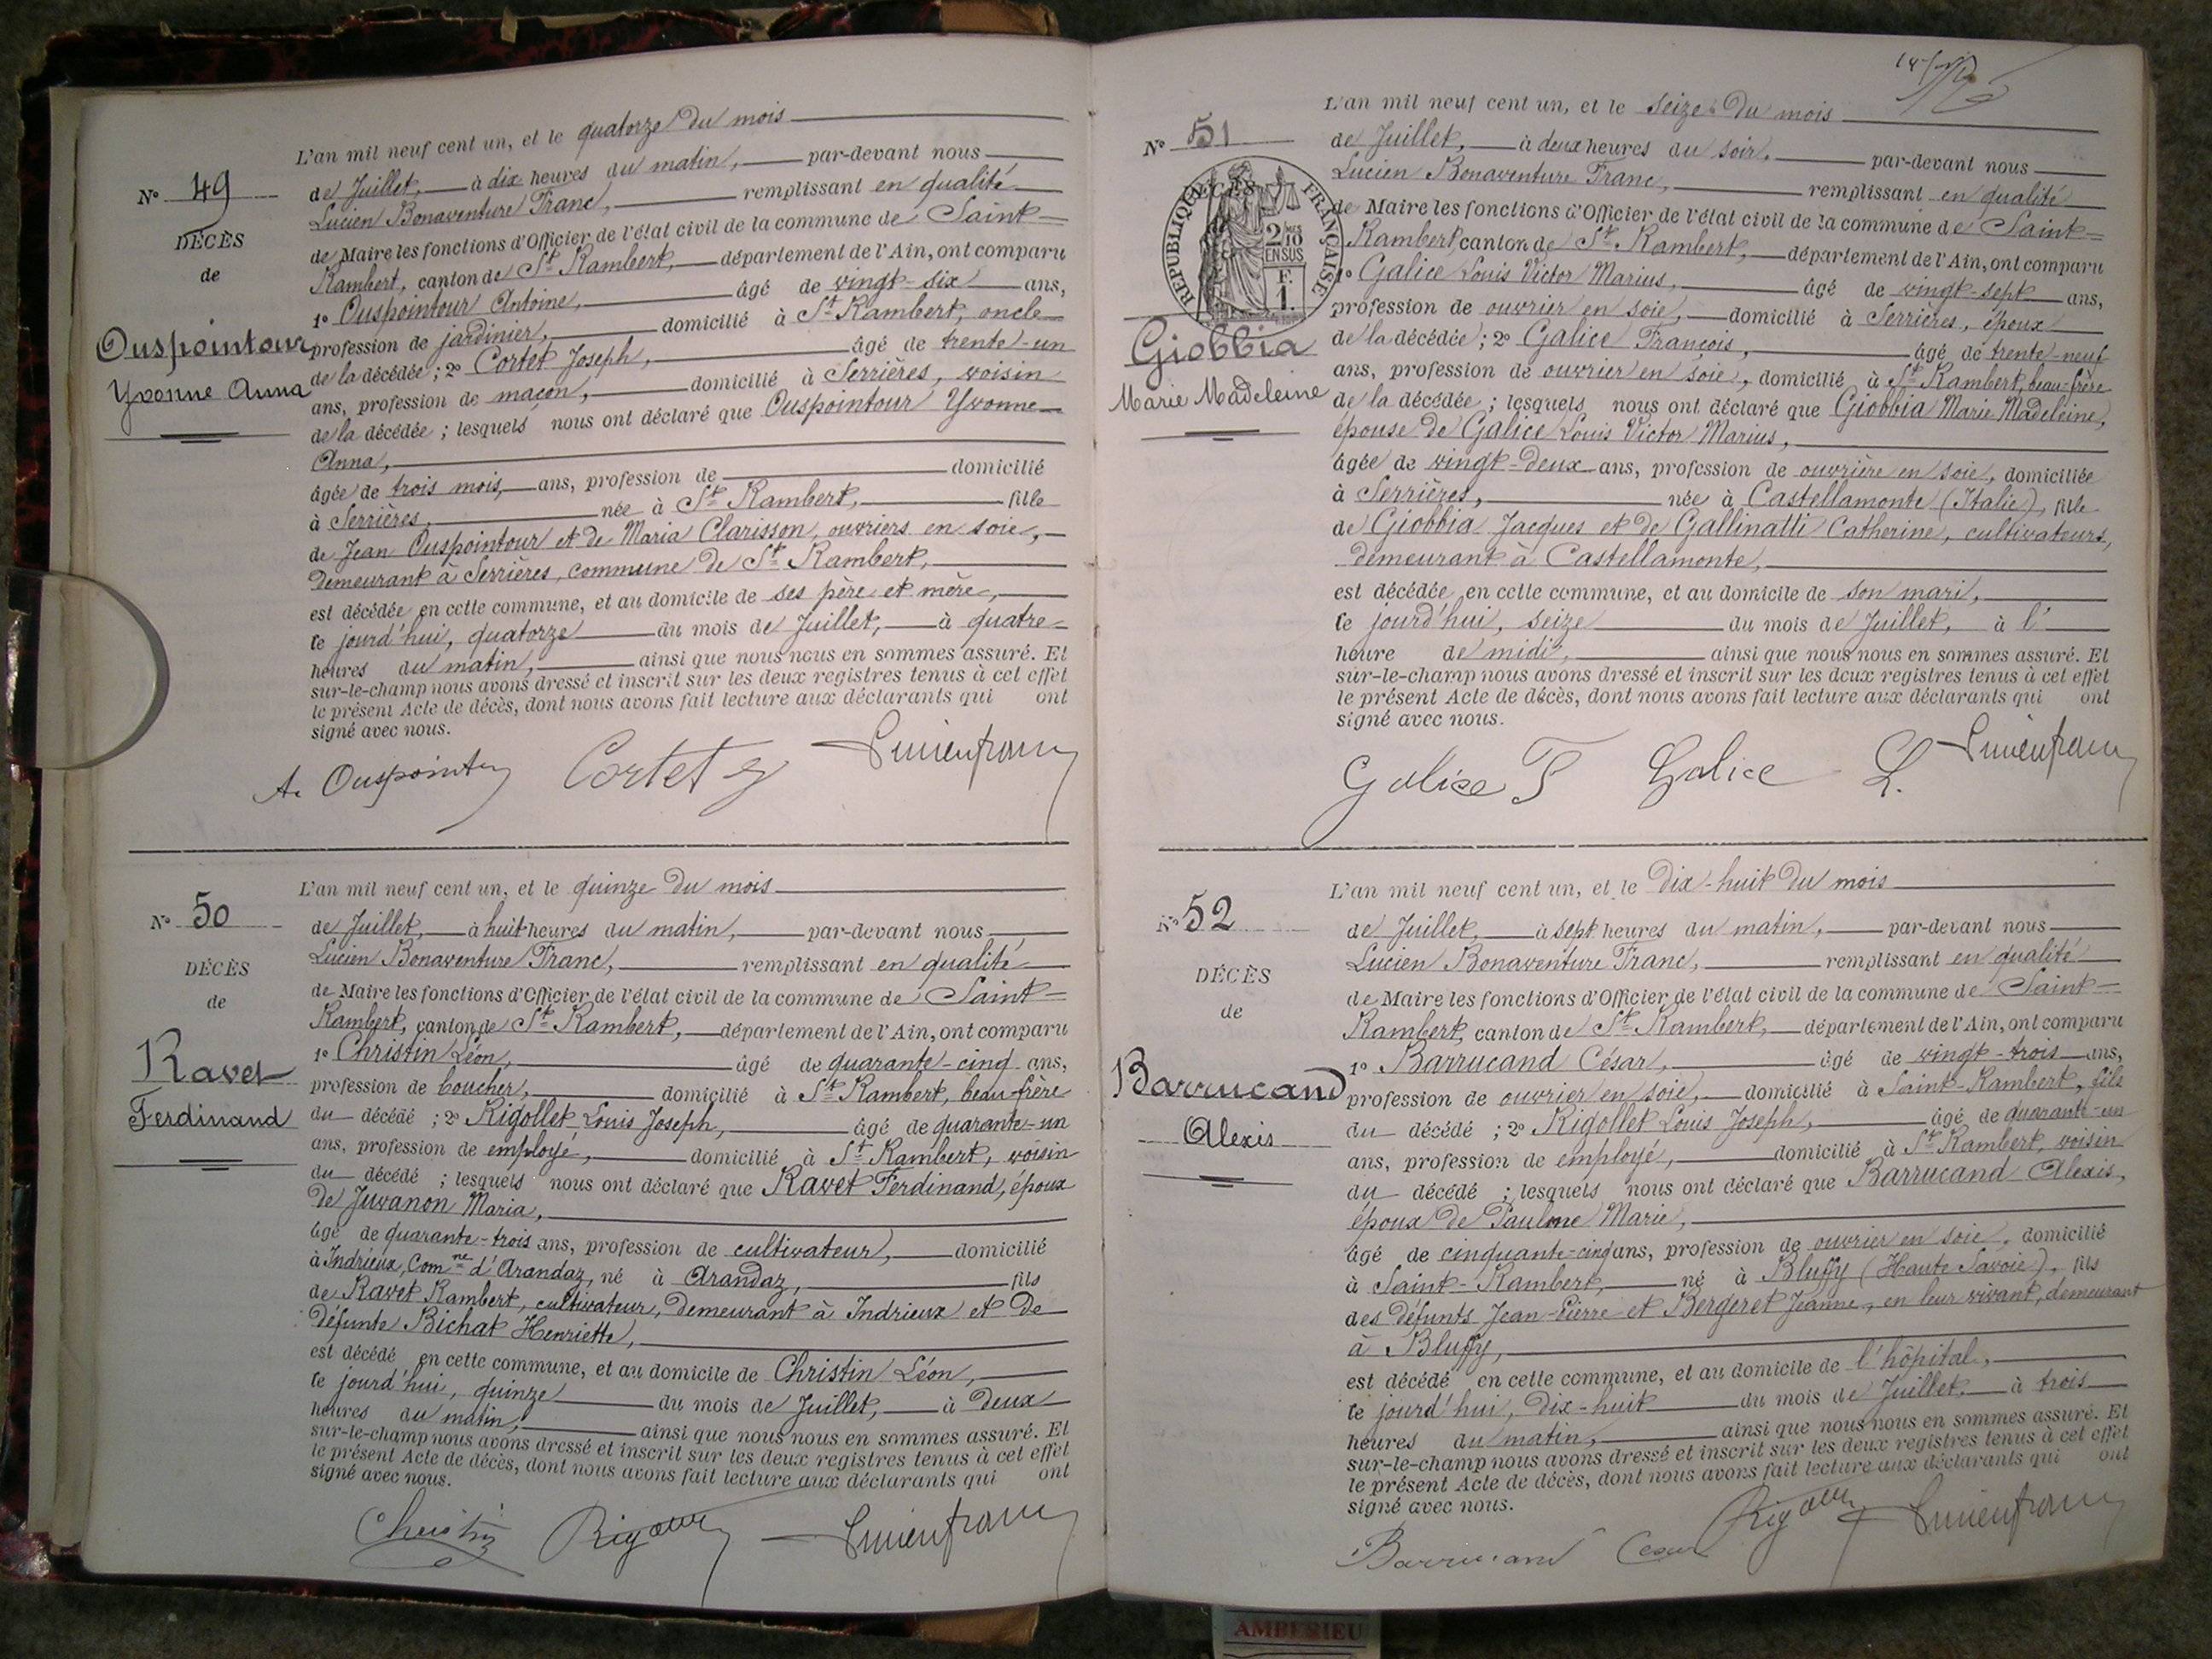 L'an mil neuf cent un, et le quatorze du mois
N° 49
de Juillet, à dix heures du matin, par-devant nous
Lucien Bonaventure Franc, remplissant en qualité
DÉCÈS
de Maire les fonctions d'Officier de l'état civil de la commune de Saint=
de
Rambert, canton de St Rambert, département de l'Ain, ont comparu
1° Ouspointour Antoine, âgé de vingt-six ans,
Ouspointour
profession de jardinier, domicilié à St Rambert, oncle
Yvonne Anna
de la décédée ; 2° Cortet Joseph, âgé de trente-un
ans, profession de maçon, domicilié à Serrières, voisin
de la décédée ; lesquels nous ont déclaré que Ouspointour Yvonne
Anna,
âgée de trois mois, ans, profession de domicilié
à Serrières, née à St Rambert, fille
de Jean Ouspointour et de Maria Clarisson, ouvriers en soie,
demeurant à Serrières, commune de St Rambert,
est décédée en cette commune, et au domicile de ses père et mère,
le jourd'hui, quatorze du mois de Juillet, à quatre
heures du matin, ainsi que nous nous en sommes assuré. Et
sur-le-champ nous avons dressé et inscrit sur les deux registres tenus à cet effet
le présent Acte de décès, dont nous avons fait lecture aux déclarants qui ont
signé avec nous.
A. Ouspointour Cortet J Lucien franc
L'an mil neuf cent un, et le quinze du mois
N° 50
de Juillet, à huit heures du matin, par-devant nous
Lucien Bonaventure Franc, remplissant en qualité
DÉCÈS
de Maire les fonctions d'Officier de l'état civil de la commune de Saint=
de
Rambert, canton de St Rambert, département de l'Ain, ont comparu
1° Christin Léon, âgé de quarante-cinq ans,
Ravet
profession de boucher, domicilié à St Rambert, beau-frère
Ferdinand
du décédé ; 2° Rigollet Louis Joseph, âgé de quarante-un
ans, profession de employé, domicilié à St Rambert, voisin
du décédé ; lesquels nous ont déclaré que Ravet Ferdinand, époux
de Juvanon Maria,
âgé de quarante-trois ans, profession de cultivateur, domicilié
à Indrieux, Comne d'Arandaz, né à Arandaz, fils
de Ravet Rambert, cultivateur, demeurant à Indrieux et de
défunte Bichat Henriette,
est décédé en cette commune, et au domicile de Christin Léon,
le jourd'hui, quinze du mois de Juillet, à deux
heures du matin, ainsi que nous nous en sommes assuré. Et
sur-le-champ nous avons dressé et inscrit sur les deux registres tenus à cet effet
le présent Acte de décès, dont nous avons fait lecture aux déclarants qui ont
signé avec nous.
Christin Lucien franc
L'an mil neuf cent un, et le seize du mois
N° 51
de Juillet, à deux heures du soir, par-devant nous
Lucien Bonaventure Franc, remplissant en qualité
DÉCÈS
RÉPUBLIQUE FRANÇAISE
2/10 EN SUS
F. 1.
de Maire les fonctions d'Officier de l'état civil de la commune de Saint=
Rambert, canton de St Rambert, département de l'Ain, ont comparu
1° Galice Louis Victor Marius, âgé de vingt-sept ans,
profession de ouvrier en soie, domicilié à Serrières, époux
Giobbia
de la décédée ; 2° Galice François, âgé de trente-neuf
Marie Madeleine
ans, profession de ouvrier en soie, domicilié à St Rambert, beau-frère
de la décédée ; lesquels nous ont déclaré que Giobbia Marie Madeleine,
épouse de Galice Louis Victor Marius,
âgée de vingt-deux ans, profession de ouvrière en soie, domiciliée
à Serrières, née à Castellamonte (Italie), fille
de Giobbia Jacques et de Gallinatti Catherine, cultivateurs,
demeurant à Castellamonte,
est décédée en cette commune, et au domicile de son mari,
le jourd'hui, seize du mois de Juillet, à l'
heure de midi, ainsi que nous nous en sommes assuré. Et
sur-le-champ nous avons dressé et inscrit sur les deux registres tenus à cet effet
le présent Acte de décès, dont nous avons fait lecture aux déclarants qui ont
signé avec nous.
Galice F Galice L. Lucien franc
L'an mil neuf cent un, et le dix-huit du mois
N° 52
de Juillet, à sept heures du matin, par-devant nous
Lucien Bonaventure Franc, remplissant en qualité
DÉCÈS
de Maire les fonctions d'Officier de l'état civil de la commune de Saint=
de
Rambert, canton de St Rambert, département de l'Ain, ont comparu
1° Barrucand César, âgé de vingt-trois ans,
Barrucand
profession de ouvrier en soie, domicilié à Saint-Rambert, fils
Alexis
du décédé ; 2° Rigollet Louis Joseph, âgé de quarante-un
ans, profession de employé, domicilié à St Rambert, voisin
du décédé ; lesquels nous ont déclaré que Barrucand Alexis,
époux de Pauline Marie,
âgé de cinquante-cinq ans, profession de ouvrier en soie, domicilié
à Saint-Rambert, né à Bluffy (Haute Savoie), fils
des défunts Jean-Pierre et Bergeret Jeanne, en leur vivant, demeurant
à Bluffy,
est décédé en cette commune, et au domicile de l'hôpital,
le jourd'hui, dix-huit du mois de Juillet, à trois
heures du matin, ainsi que nous nous en sommes assuré. Et
sur-le-champ nous avons dressé et inscrit sur les deux registres tenus à cet effet
le présent Acte de décès, dont nous avons fait lecture aux déclarants qui ont
signé avec nous.
Barrucand Cesar Lucien franc
AMBERIEU